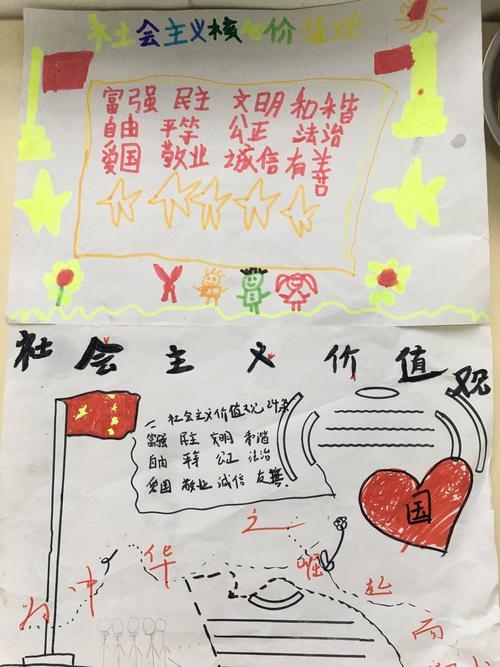 社会主义核心价值观
富强 民主 文明 和谐
自由 平等 公正 法治
爱国 敬业 诚信 有善
社会主义价值观
一、社会主义价值观24条
富强 民主 文明 和谐
自由 平等 公正 法治
爱国 敬业 诚信 友善.
国
为中华之崛起而